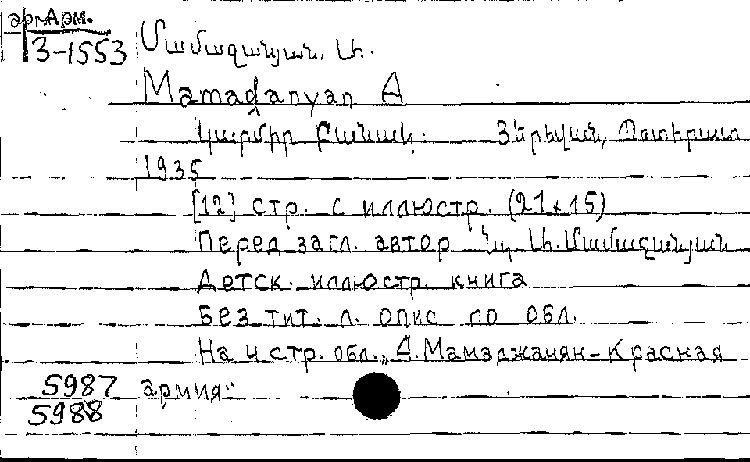 арм.
3-1553
Մամաջանյան, Ա.
Mamadanyan A
Կարմիր Բանակ. Յերևան, Պետհրատ
1935
[12] стр. с иллюстр. (21x15)
Перед загл. автор Նկ. Ա. Մամաջանյան
Детск. иллюстр. книга
Без тит. л. опис по обл.
На 4 стр. обл. „А. Мамаджанян-Красная
5987 армия"
5988